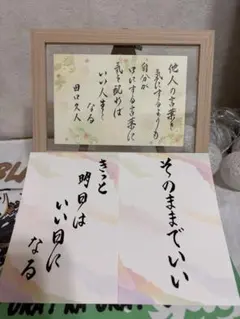 他人の言葉を
気にするよりも
自分が
口にする言葉に
気を配れば
いい人生と
なる
田口久人
そのままでいい
きっと
明日は
いい日に
なる